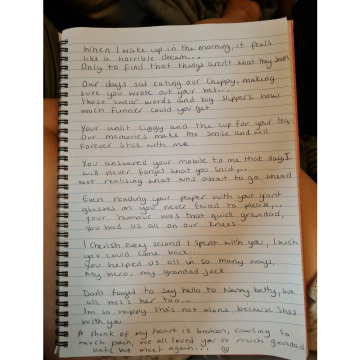 When I wake up in the morning, it feels
like a horrible dream...
Only to find that things aren't what they seem
Our days sat eating our chuppy, making
sure you wrote out your bets...
Those swear words and big slippers how
much funnier could you get
Your unlit ciggy and the cup for your tea
Our memories make me smile and will
forever stick with me
You answered your mobile to me that day, I
will never forget what you said...
not realising what was about to go ahead
Even reading your paper with your giant
glasses on you never tried to please...
Your humour was that quick grandad,
You had us all on our knees
I cherish every second I spent with you, I wish
you could come back...
You helped us all in so many ways,
My hero, my grandad Jack
Don't forget to say hello to Nanny betty, we
all miss her too...
I'm so happy she's not alone, because she's
with you
A chunk of my heart is broken, causing so
much pain, we all loved you so much grandad
until we meet again...